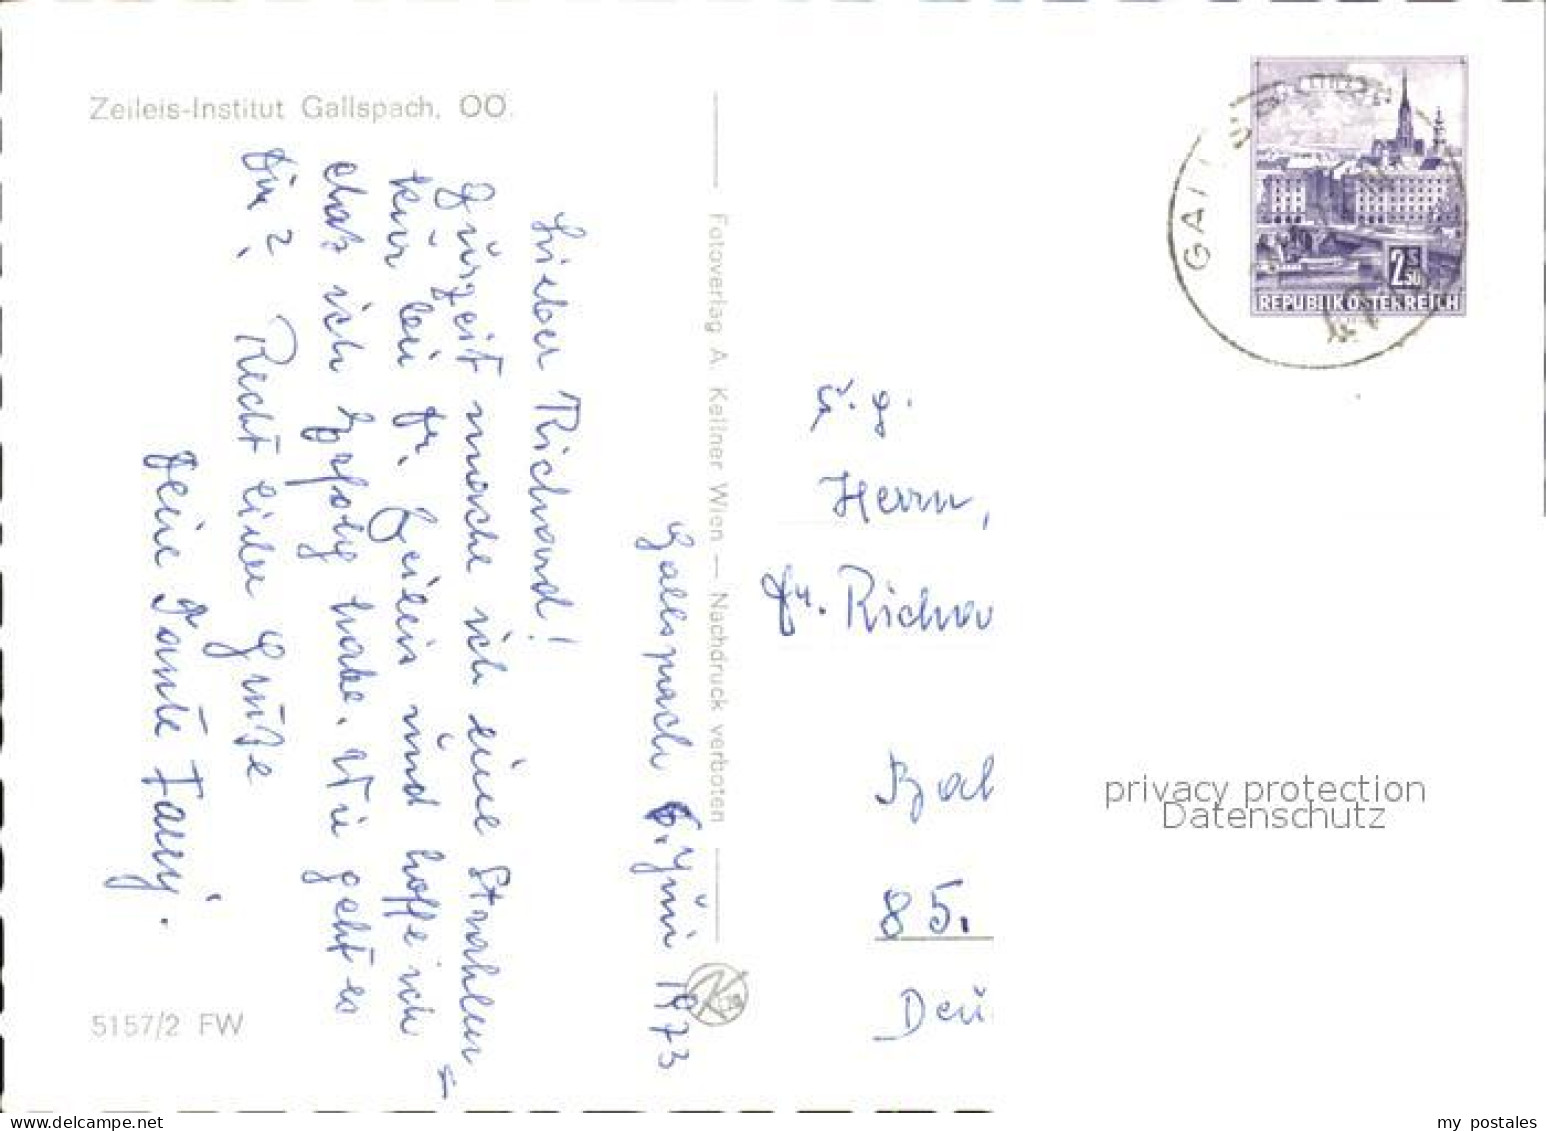 Zeileis-Institut Gallspach, OÖ.
Gallspach 6. Juni 1973
Lieber Richard!
Zurzeit mache ich eine Strahlen-
kur bei Dr. Zeileis und hoffe ich
daß ich Erfolg habe. Wie geht es
Dir? Recht liebe Grüße
Deine Tante Fanny.
Fotoverlag A. Kellner Wien — Nachdruck verboten
5157/2 FW
REPUBLIK ÖSTERREICH
2 S 50
GALLS
S. g.
Herrn,
Dr. Richar
85.
Deu
privacy protection
Datenschutz
my postales